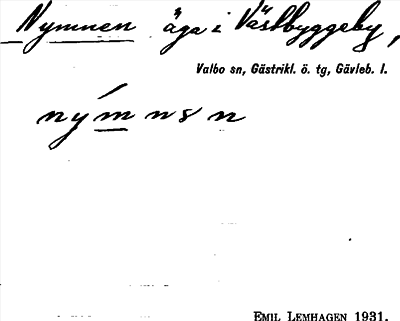 Nymnen äga i Västbyggeby,
Valbo sn, Gästrikl. ö. tg, Gävleb. l.
nýmnsn
EMIL LEMHAGEN 1931.